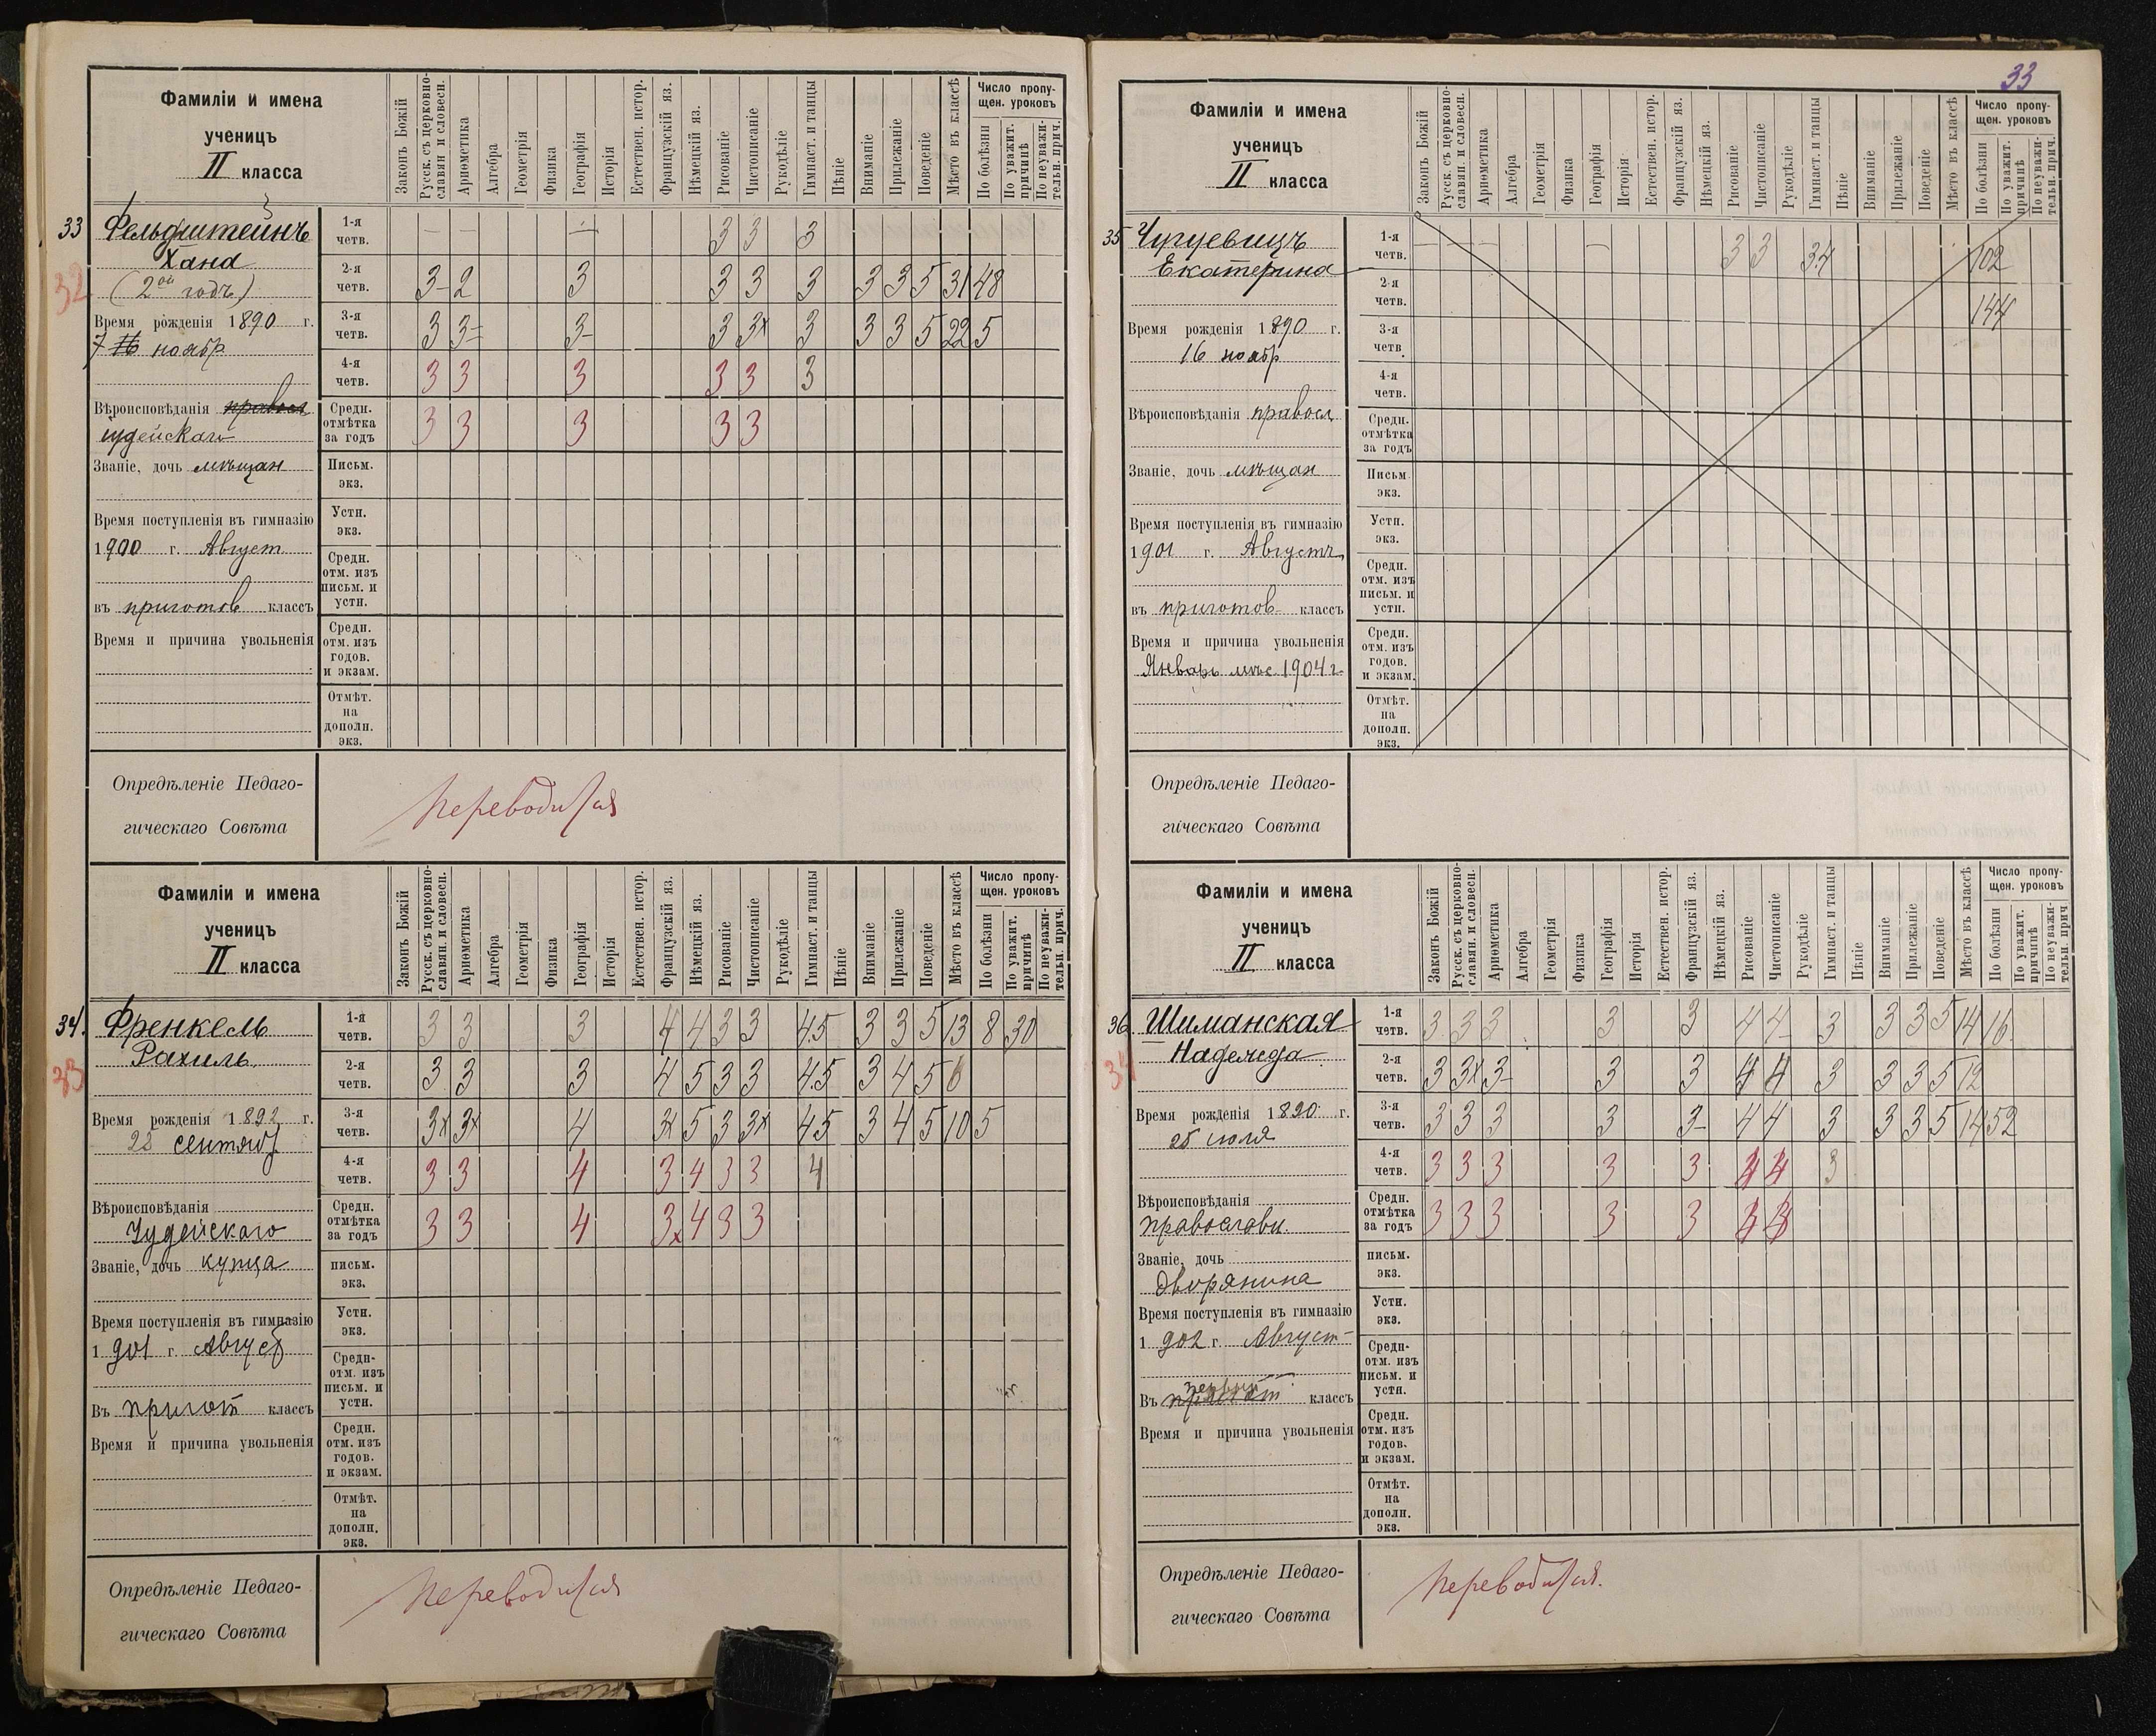 33
Фамиліи и имена
ученицъ
II класса
Законъ Божій
Русск. съ церковно-
славян. и словесн.
Ариөметика
Алгебра
Геометрія
Физика
Географія
Исторія
Естествен. истор.
Французскій яз.
Нѣмецкій яз.
Рисованіе
Чистописаніе
Рукодѣліе
Гимнаст. и танцы
Пѣніе
Вниманіе
Прилежаніе
Поведеніе
Мѣсто въ классѣ
Число пропу-
щен. уроковъ
По болѣзни
По уважит.
причинѣ
По неуважи-
тельн. прич.
33 Фельдштейнъ
Хана
32
(2ой годъ)
Время рожденія 1890 г.
7 16 ноябр
Вѣроисповѣданія правосл
іудейскаго
Званіе, дочь мѣщан
Время поступленія въ гимназію
1900 г. Август
въ приготов классъ
Время и причина увольненія
1-я
четв. — — — 3 3 3
2-я
четв. 3- 2 3 3 3 3 3 3 5 31 48
3-я
четв. 3 3= 3- 3 3x 3 3 3 5 22 5
4-я
четв. 3 3 3 3 3 3
Средн.
отмѣтка
за годъ 3 3 3 3 3
Письм.
экз.
Устн.
экз.
Средн.
отм. изъ
письм. и
устн.
Средн.
отм. изъ
годов.
и экзам.
Отмѣт.
на
дополн.
экз.
Опредѣленіе Педаго-
гическаго Совѣта
Переводится
Фамиліи и имена
ученицъ
II класса
Законъ Божій
Русск. съ церковно-
славян. и словесн.
Ариөметика
Алгебра
Геометрія
Физика
Географія
Исторія
Естествен. истор.
Французскій яз.
Нѣмецкій яз.
Рисованіе
Чистописаніе
Рукодѣліе
Гимнаст. и танцы
Пѣніе
Вниманіе
Прилежаніе
Поведеніе
Мѣсто въ классѣ
Число пропу-
щен. уроковъ
По болѣзни
По уважит.
причинѣ
По неуважи-
тельн. прич.
34. Френкель
Рахиль
33
Время рожденія 1892 г.
22 сентяб
Вѣроисповѣданія
Іудейскаго
Званіе, дочь купца
Время поступленія въ гимназію
1901 г. Август
Въ пригот классъ
Время и причина увольненія
1-я
четв. 3 3 3 4 4 3 3 4.5 3 3 5 13 8 30
2-я
четв. 3 3 3 4 5 3 3 4.5 3 4 5 6
3-я
четв. 3x 3x 4 3x 5 3 3x 4.5 3 4 5 10 5
4-я
четв. 3 3 4 3 4 3 3 4
Средн.
отмѣтка
за годъ 3 3 4 3x 4 3 3
письм.
экз.
Устн.
экз.
Средн-
отм. изъ
письм. и
устн.
Средн.
отм. изъ
годов.
и экзам.
Отмѣт.
на
дополн.
экз.
Опредѣленіе Педаго-
гическаго Совѣта
Переводится
Фамиліи и имена
ученицъ
II класса
Законъ Божій
Русск. съ церковно-
славян. и словесн.
Ариөметика
Алгебра
Геометрія
Физика
Географія
Исторія
Естествен. истор.
Французскій яз.
Нѣмецкій яз.
Рисованіе
Чистописаніе
Рукодѣліе
Гимнаст. и танцы
Пѣніе
Вниманіе
Прилежаніе
Поведеніе
Мѣсто въ классѣ
Число пропу-
щен. уроковъ
По болѣзни
По уважит.
причинѣ
По неуважи-
тельн. прич.
35 Чугуевицъ
Екатерина
Время рожденія 1890 г.
16 ноябр
Вѣроисповѣданія правосл
Званіе, дочь мѣщан
Время поступленія въ гимназію
1901 г. Августъ
въ приготов классъ
Время и причина увольненія
Январь мѣс 1904 г.
1-я
четв. — — — — 3 3 3.4 102
2-я
четв. 144
3-я
четв.
4-я
четв.
Средн.
отмѣтка
за годъ
Письм
экз.
Устн.
экз.
Средн.
отм. изъ
письм. и
устн.
Средн.
отм. изъ
годов.
и экзам.
Отмѣт.
на
дополн.
экз.
Опредѣленіе Педаго-
гическаго Совѣта
Фамиліи и имена
ученицъ
II класса
Законъ Божій
Русск. съ церковно-
славян. и словесн.
Ариөметика
Алгебра
Геометрія
Физика
Географія
Исторія
Естествен. истор.
Французскій яз.
Нѣмецкій яз.
Рисованіе
Чистописаніе
Рукодѣліе
Гимнаст. и танцы
Пѣніе
Вниманіе
Прилежаніе
Поведеніе
Мѣсто въ классѣ
Число пропу-
щен. уроковъ
По болѣзни
По уважит.
причинѣ
По неуважи-
тельн. прич
36. Шиманская
Надежда
34
Время рожденія 1890 г.
25 іюля
Вѣроисповѣданія
православн.
Званіе, дочь
дворянина
Время поступленія въ гимназію
1902 г. Август
первый
Въ пригот классъ
Время и причина увольненія
1-я
четв. 3 3 3 3 3 4 4- 3 3 3 5 14 16
2-я
четв. 3 3x 3- 3 3 4 4 3 3 3 5 12
3-я
четв. 3 3 3 3 3- 4 4 3 3 3 5 14 52
4-я
четв. 3 3 3 3 3 4 4 3
Средн.
отмѣтка
за годъ 3 3 3 3 3 4 4
письм.
экз.
Устн.
экз.
Средн-
отм. изъ
письм. и
устн.
Средн.
отм. изъ
годов.
и экзам.
Отмѣт.
на
дополн.
экз.
Опредѣленіе Педаго-
гическаго Совѣта
Переводится.